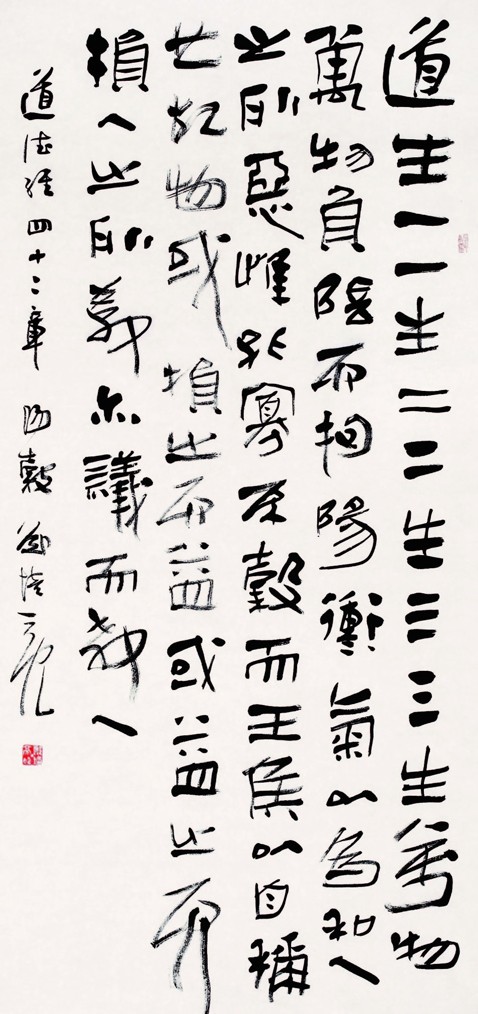 道生一一生二二生三三生萬物
萬物負陰而抱陽衝氣以為和人
之所惡唯孤寡不穀而王侯以自稱
也故物或損之而益或益之而
損人之所教亦議而教人
道德經四十二章 陽穀